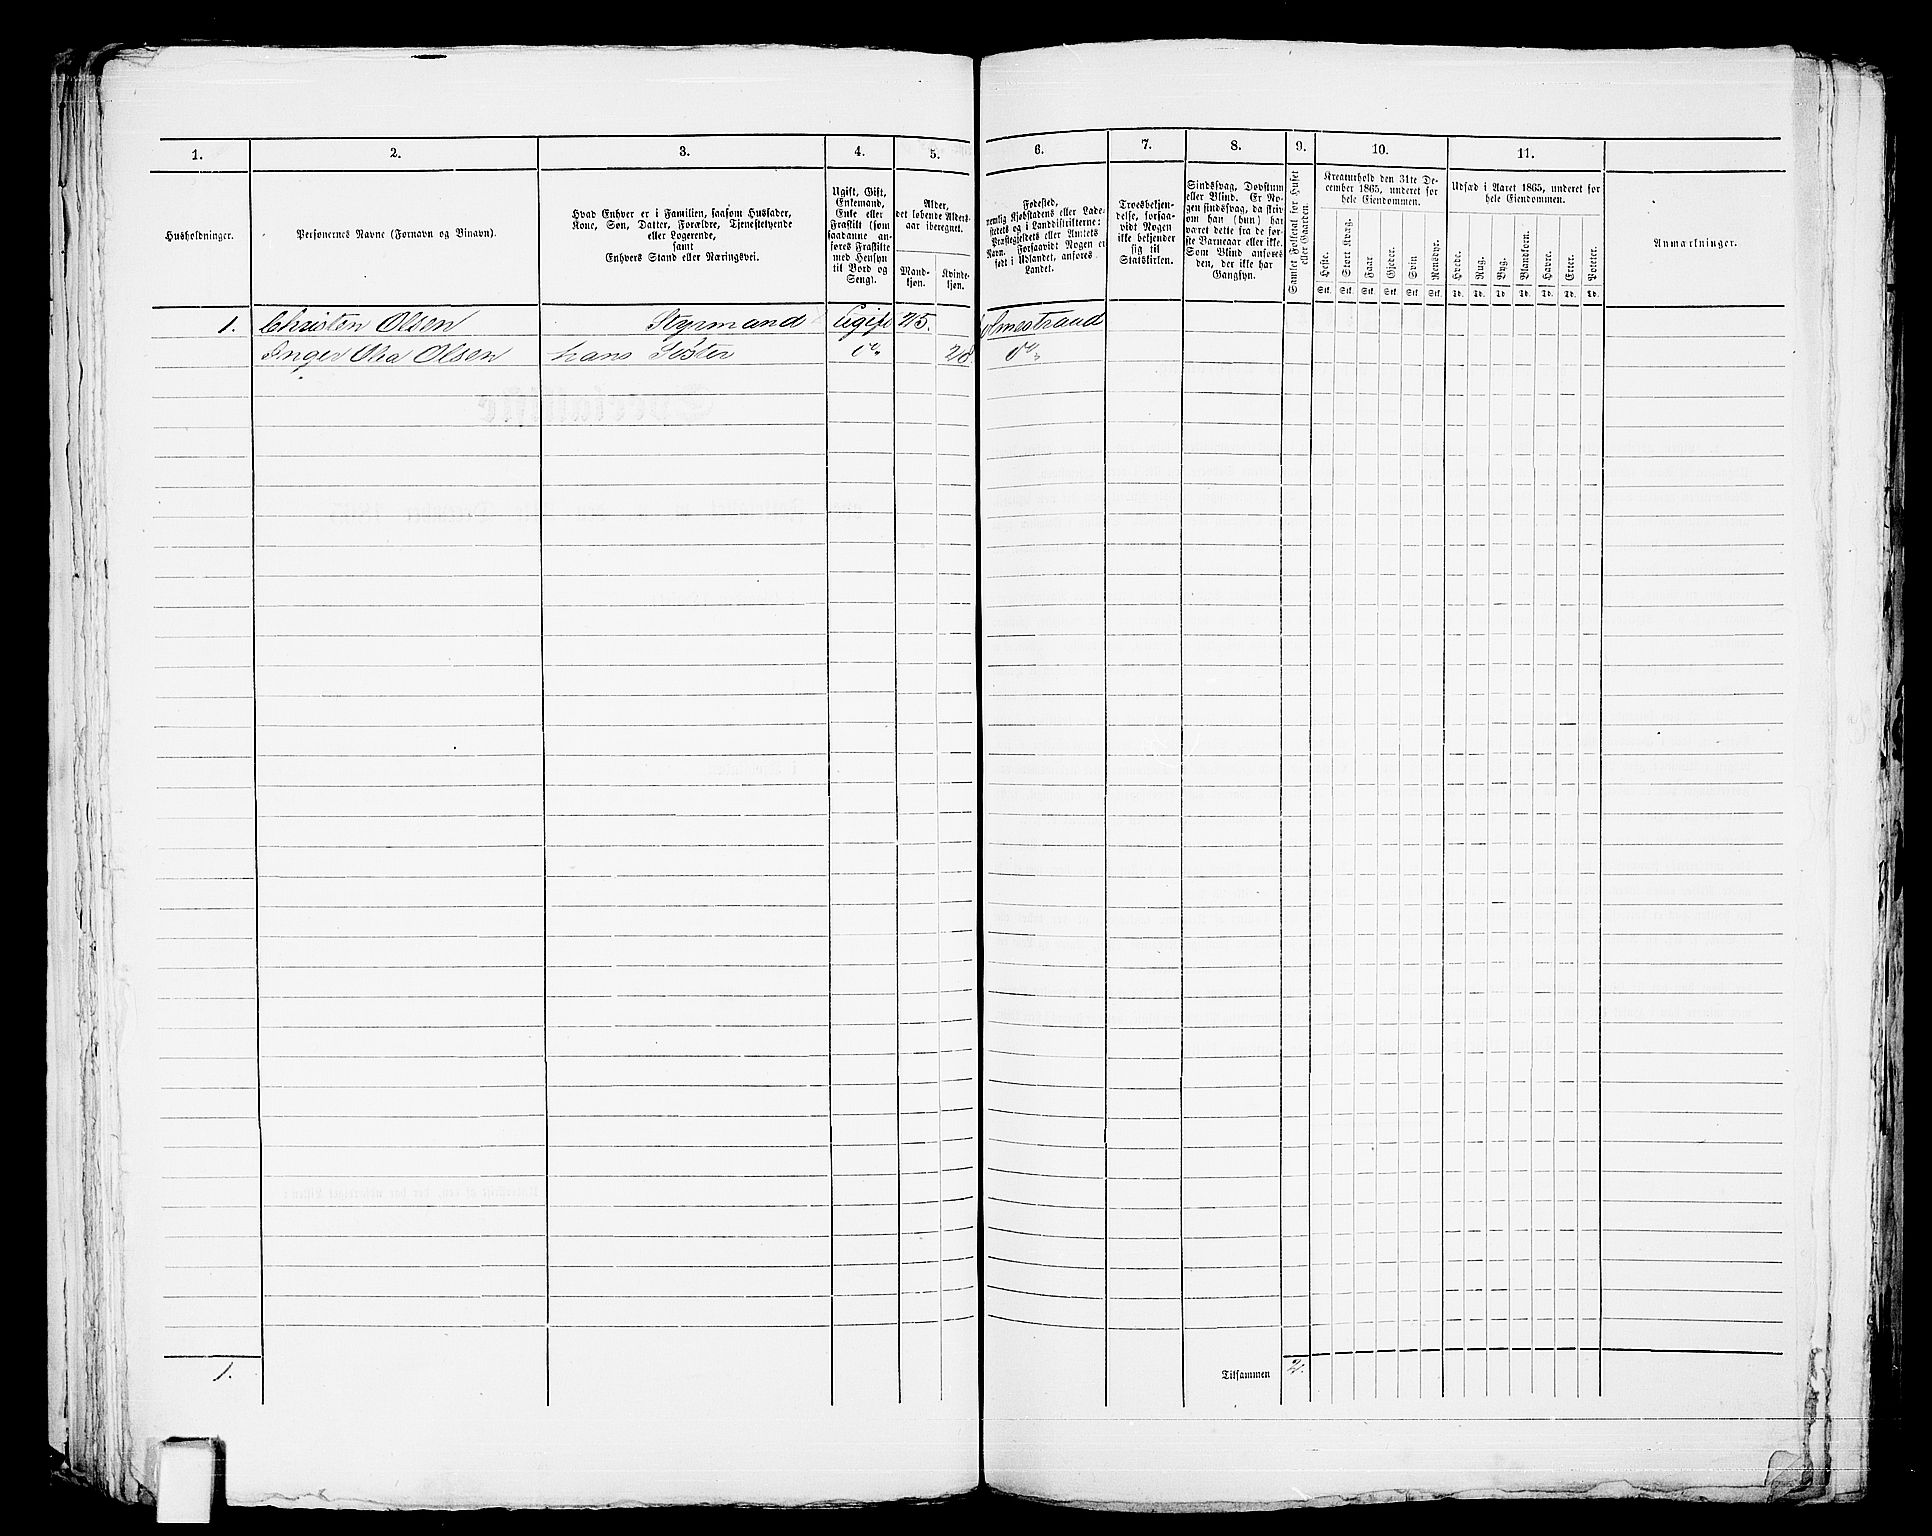 1.
2.
3.
4.
5.
6.
7.
8.
9.
10.
11.
Husholdninger.
Personernes Navne (Fornavn og Binavn).
Hvad Enhver er i Familien, saasom Husfader,
Kone, Søn, Datter, Forældre, Tjenestetyende
eller Logerende,
samt
Enhvers Stand eller Næringsvei.
Ugift, Gift,
Enkemand,
Enke eller
Fraskilt (som
saadanne an-
føres Fraskilte
med Hensyn
til Bord og
Seng).
Alder,
det løbende Alders-
aar iberegnet.
Mand-
kjøn.
Kvinde-
kjøn.
Fødested,
nemlig Kjøbstadens eller Lade-
stedets og i Landdistrikterne:
Præstegjeldets eller Amtets
Navn. Forsaavidt Nogen er
født i Udlandet, anføres
Landet.
Troesbekjen-
delse, forsaa-
vidt Nogen
ikke bekjender
sig til
Statskirken.
Sindssvag, Døvstum
eller Blind. Er No-
gen sindssvag, da skriv
om han (hun) har
været dette fra de før-
ste Barneaar eller ikke.
Som Blind anføres
den, der ikke har
Gangsyn.
Samlet Folketal for Huset
eller Gaarden.
Kreaturhold den 31te De-
cember 1865, underet for
hele Eiendommen.
Heste.
Stort Kvæg.
Faar
Gjeder.
Svin
Rensdyr.
Stk. Stk. Stk. Stk. Stk. Stk.
Udsæd i Aaret 1865, underet for
hele Eiendommen.
Hvede.
Rug.
Byg.
Blandkorn.
Havre.
Erter.
Poteter.
Td. Td. Td Td. Td. Td. Td.
Anmærkninger.
1. Christen Olsen Styrmand Ugift 25. Holmestrand
Inger Olsen hans Søster do 28 do
1.
Tilsammen 2.